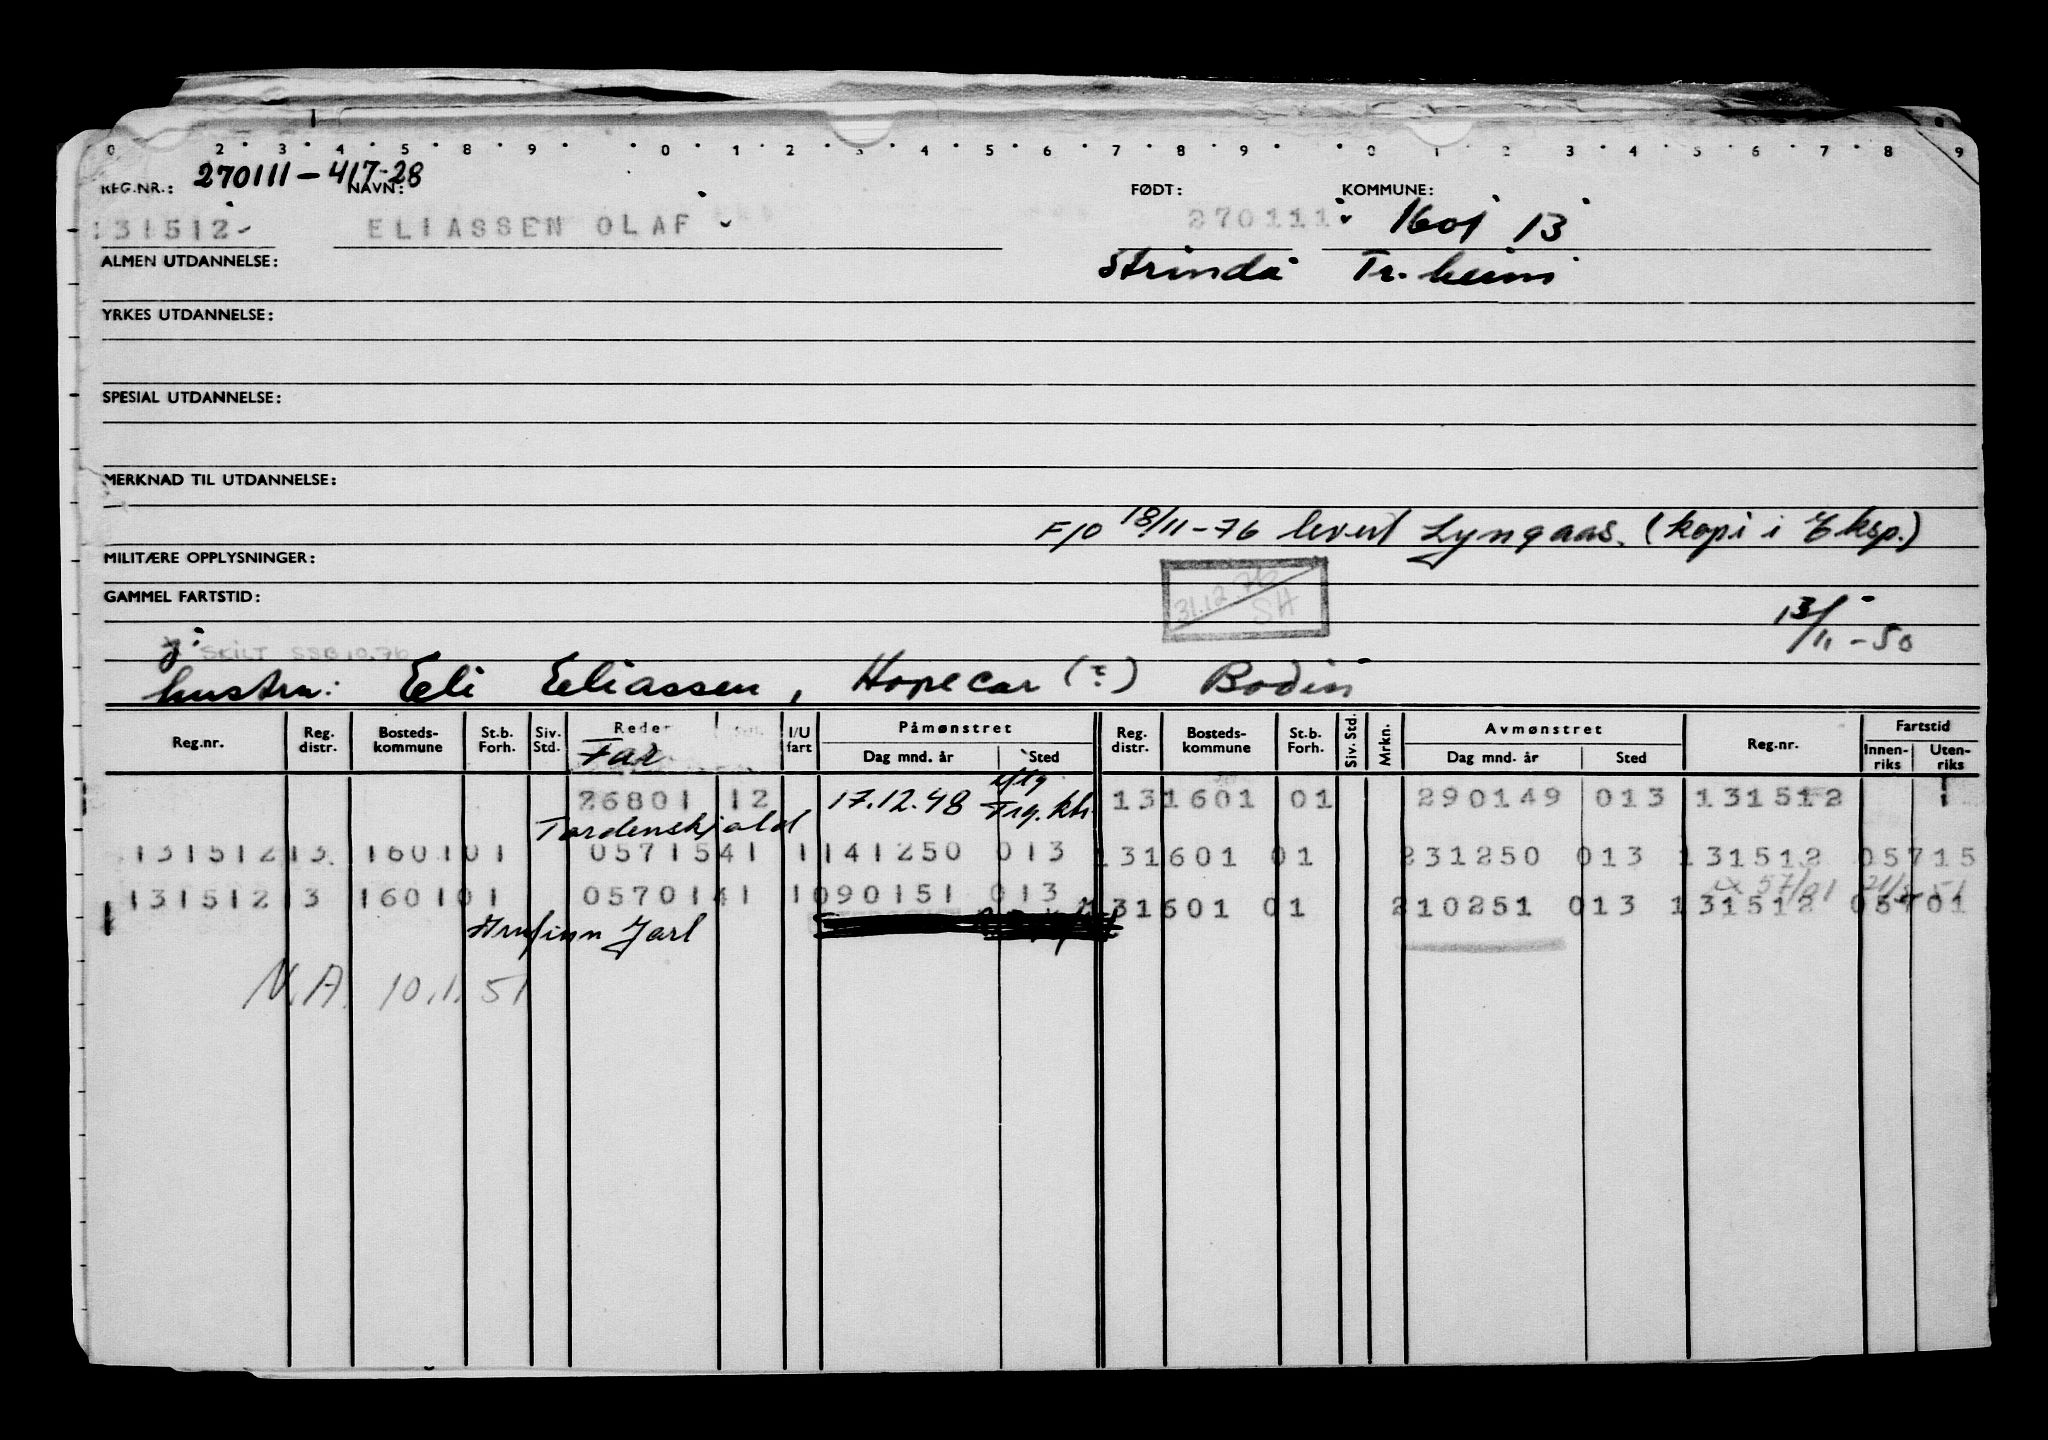 0 2 3 4 5 8 9 0 1 2 3 4 5 6 7 8 9 0 1 2 3 4 5 6 7 8 9
REG.NR.: 270111-417-28 NAVN: FØDT: KOMMUNE:
131512 ELIASSEN OLAF 270111 1601 13
ALMEN UTDANNELSE: Strinda Tr.heim
YRKES UTDANNELSE:
SPESIAL UTDANNELSE:
MERKNAD TIL UTDANNELSE:
F/O 18/11-76 levert Lyngaas. (kopi i Eksp.)
MILITÆRE OPPLYSNINGER:
GAMMEL FARTSTID: 31.12.76 SH
13/11-50
SKILT SSB 10.76
hustru: Eli Eliassen, Hopecar (?) Bodin
Reg.nr. Reg. distr. Bosteds-kommune St.b. Forh. Siv. Std. Reder I/U fart Påmønstret Dag mnd. år Sted Reg. distr. Bosteds-kommune St.b. Forh. Siv. Std. Mrkn. Avmønstret Dag mnd. år Sted Reg.nr. Fartstid Innen-riks Uten-riks
Far
26801 12 17.12.48 131601 01 290149 013 131512 1
Tordenskjold
131512 13 1601 01 0571541 1 141250 013 131601 01 231250 013 131512 05715
131512 13 1601 01 0570141 1 090151 013 131601 01 210251 013 131512 05701
Arnfinn Jarl
N.A. 10.1.51